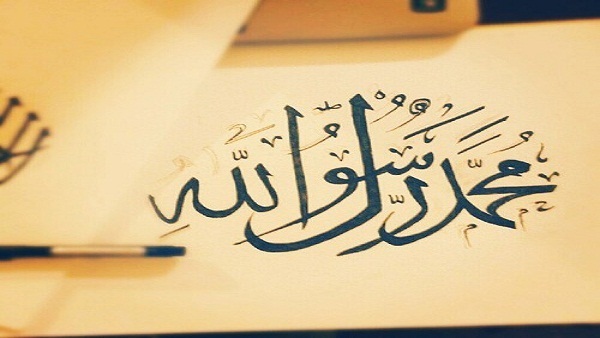 مُحَمَّد رَّسُوْلُ اللّٰهِ